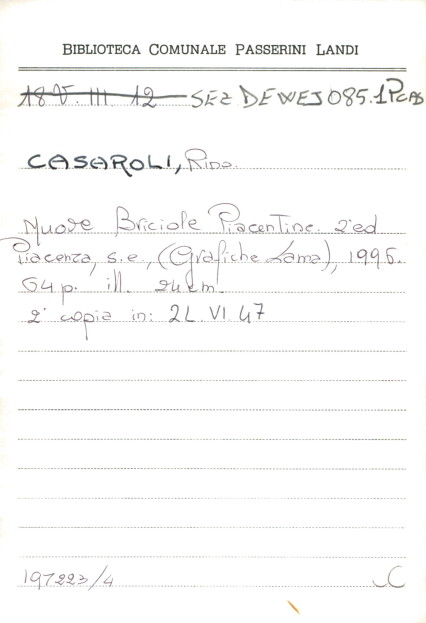 BIBLIOTECA COMUNALE PASSERINI LANDI
18 V. III. 12 SEZ DEWEJ 085.1 PCAS
CASAROLI, Rino.
Nuove Briciole Piacentine. 2ª ed
Piacenza, s.e., (Grafiche Lama), 1996.
64 p. ill. 24 cm.
2ª copia in: 2L. VI. 47
197223/4